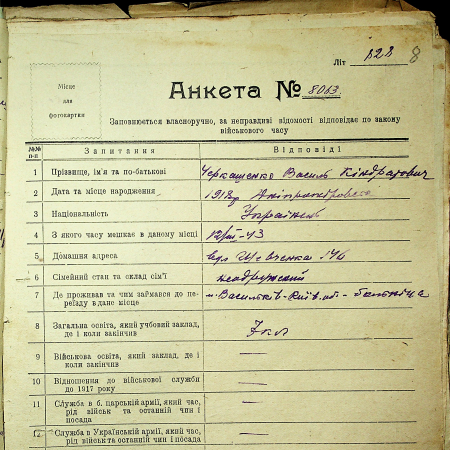 Літ 828 8
Місце
для
фотокартки
Анкета № 8013.
Заповнюється власноручно, за неправдиві відомості відповідає по закону
військового часу
№№
п-п
Запитання
Відповіді
1 Прізвище, ім'я та по-батькові Черкащенко Василь Кіндратович
2 Дата та місце народження 1918р Дніпропетровськ
3 Національність Українець
4 З якого часу мешкає в даному місці 12/VIII-43
5 Домашня адреса вул Шевченка
6 Сімейний стан та склад сім'ї
7 Де проживав та чим займався до пе-
реїзду в дане місце м. Васильків - Київ. об. -
8 Загальна освіта, який учбовий заклад,
де і коли закінчив 7 кл
9 Військова освіта, який заклад, де і
коли закінчив —
10 Відношення до військової служби
до 1917 року —
11 Служба в б. царській армії, який час,
рід військ та останній чин і
посада —
12 Служба в Українській армії, який час,
рід військ та останній чин і посада —